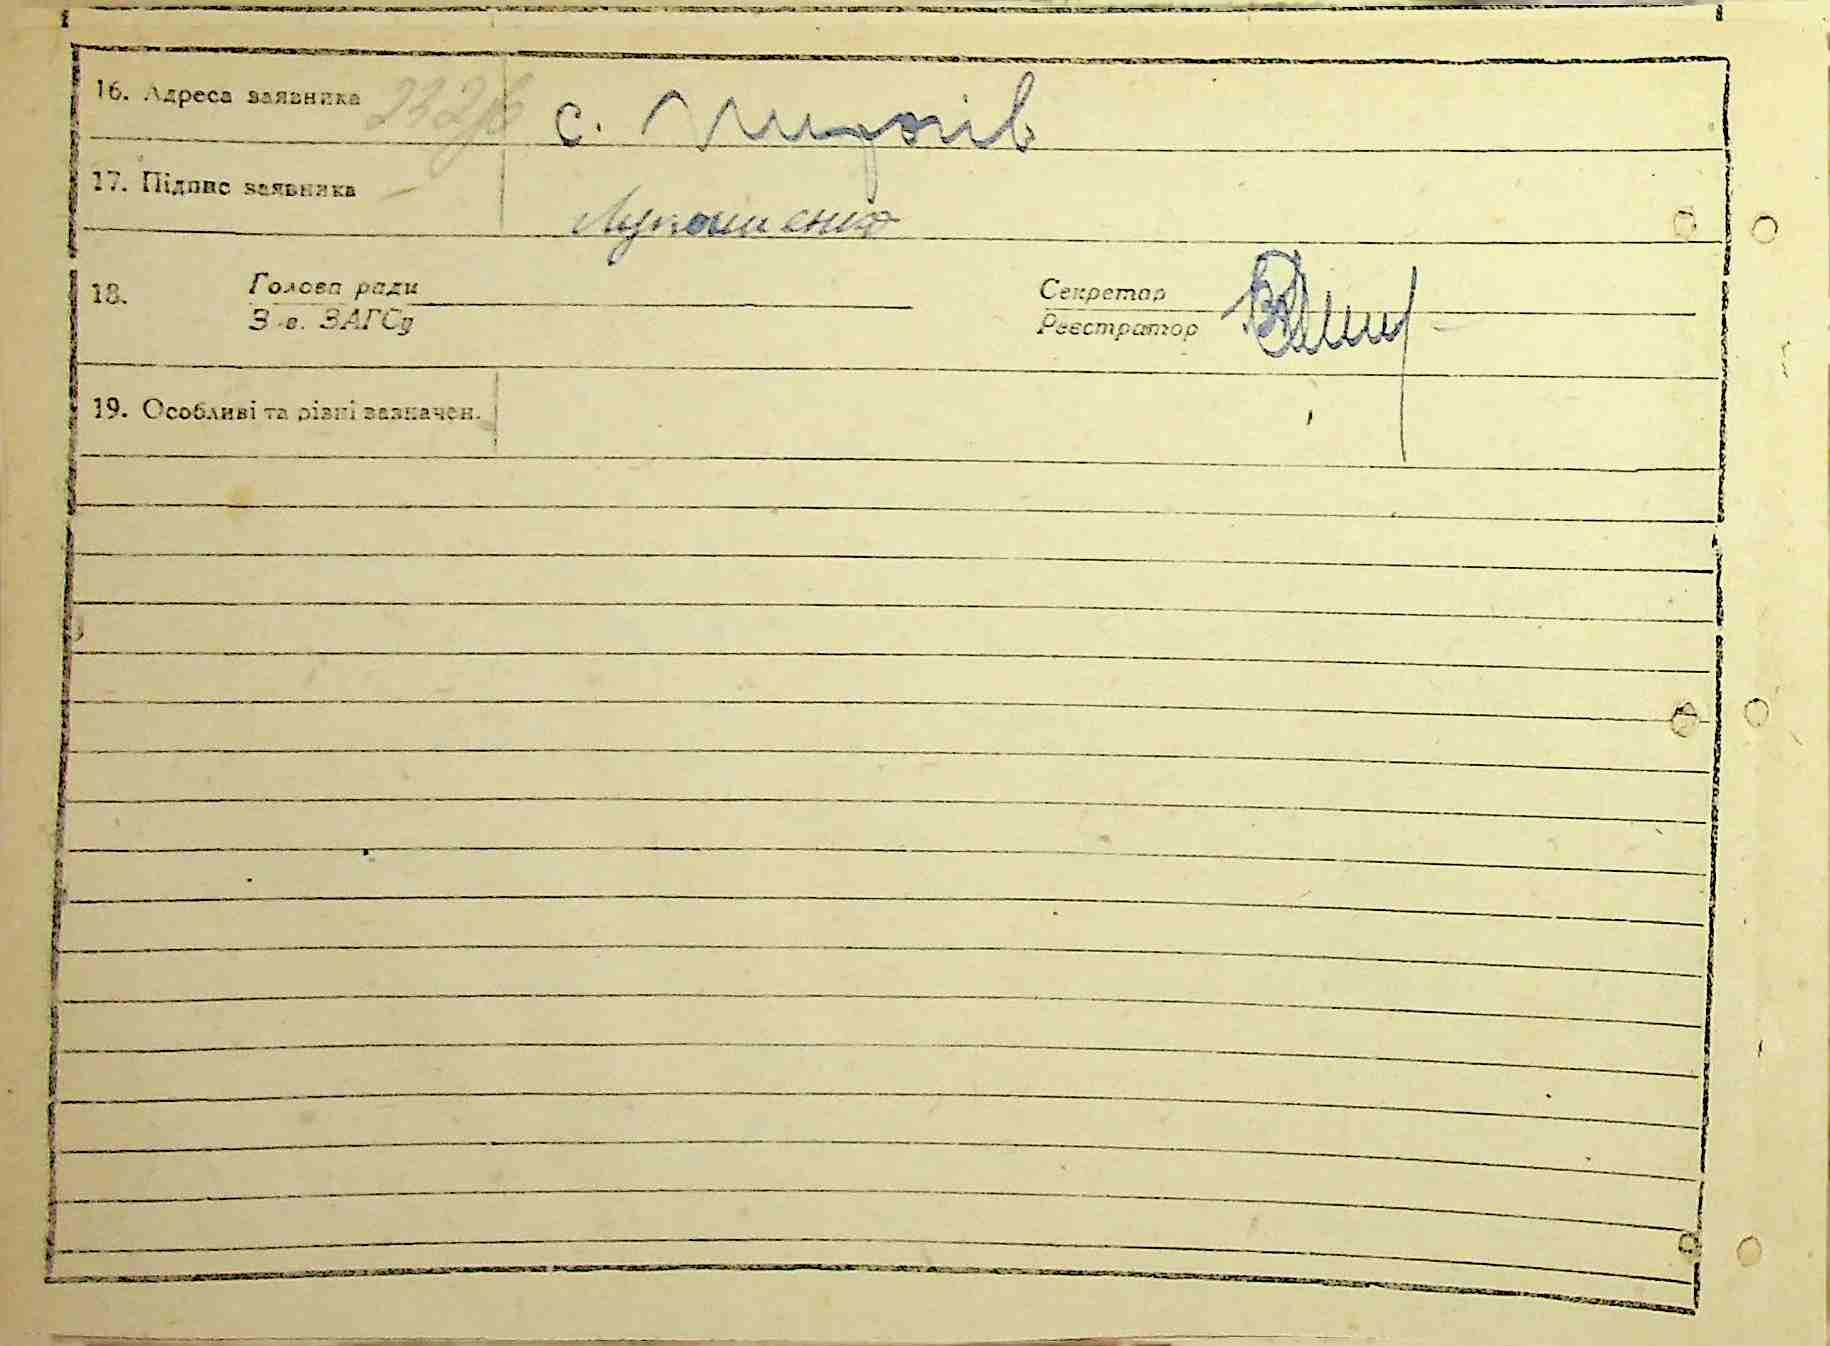 16. Адреса заявника с.
17. Підпис заявника
18. Голова ради Секретар
З-в. ЗАГСу Реєстратор
19. Особливі та різні зазначен.